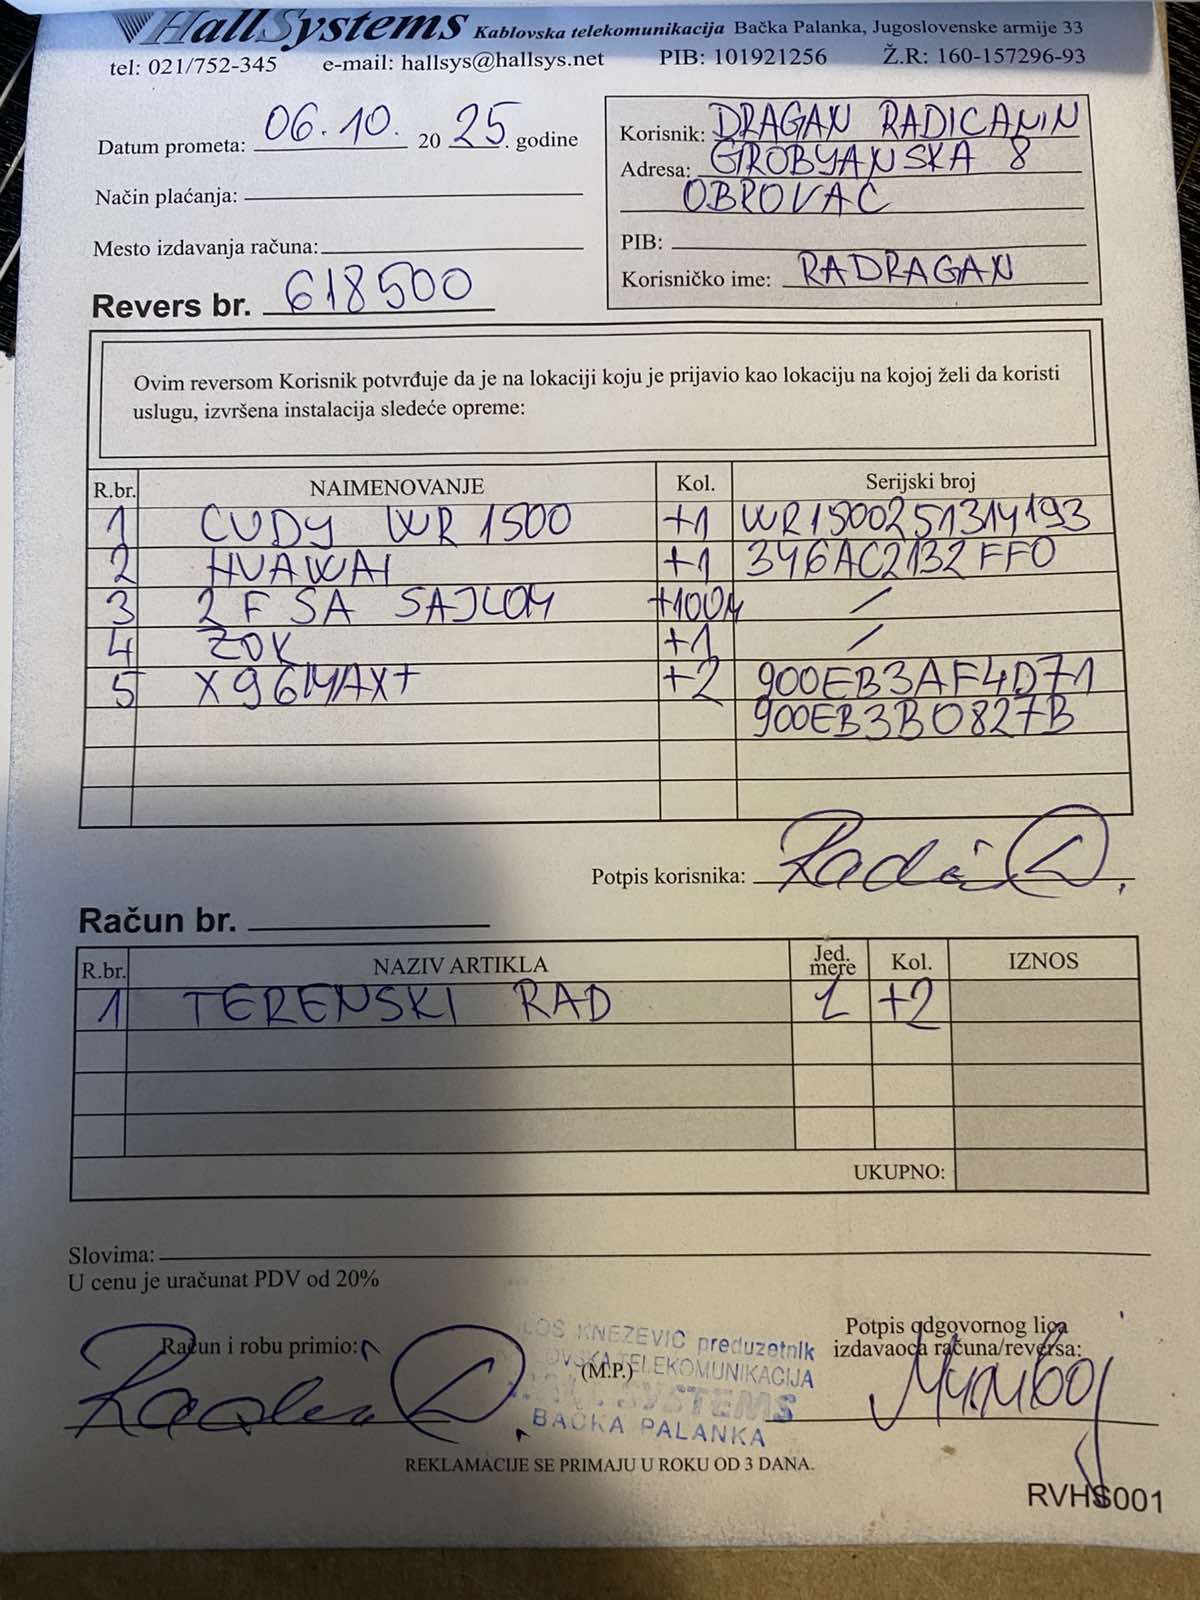 HallSystems Kablovska telekomunikacija Bačka Palanka, Jugoslovenske armije 33
tel: 021/752-345 e-mail: hallsys@hallsys.net PIB: 101921256 Ž.R: 160-157296-93
Datum prometa: 06.10. 2025. godine
Način plaćanja:
Mesto izdavanja računa:
Revers br. 618500
Korisnik: DRAGAN RADICANIN
Adresa: GROBYANSKA 8
OBROVAC
PIB:
Korisničko ime: RADRAGAN
Ovim reversom Korisnik potvrđuje da je na lokaciji koju je prijavio kao lokaciju na kojoj želi da koristi
uslugu, izvršena instalacija sledeće opreme:
R.br. NAIMENOVANJE Kol. Serijski broj
1 CUDY WR 1500 +1 WR1500251314193
2 HUAWAI +1 346AC2132FF0
3 2 F SA SAJLOM +100M /
4 ZOK +1 /
5 X96MAX+ +2 900EB3AF4D71
900EB3B0827B
Potpis korisnika:
Račun br.
R.br. NAZIV ARTIKLA Jed. mere Kol. IZNOS
1 TERENSKI RAD 1 +2
UKUPNO:
Slovima:
U cenu je uračunat PDV od 20%
Račun i robu primio:
(M.P.)
KNEZEVIC preduzetnik
TELEKOMUNIKACIJA
SYSTEMS
BAČKA PALANKA
Potpis odgovornog lica
izdavaoca računa/reversa:
REKLAMACIJE SE PRIMAJU U ROKU OD 3 DANA.
RVHS001